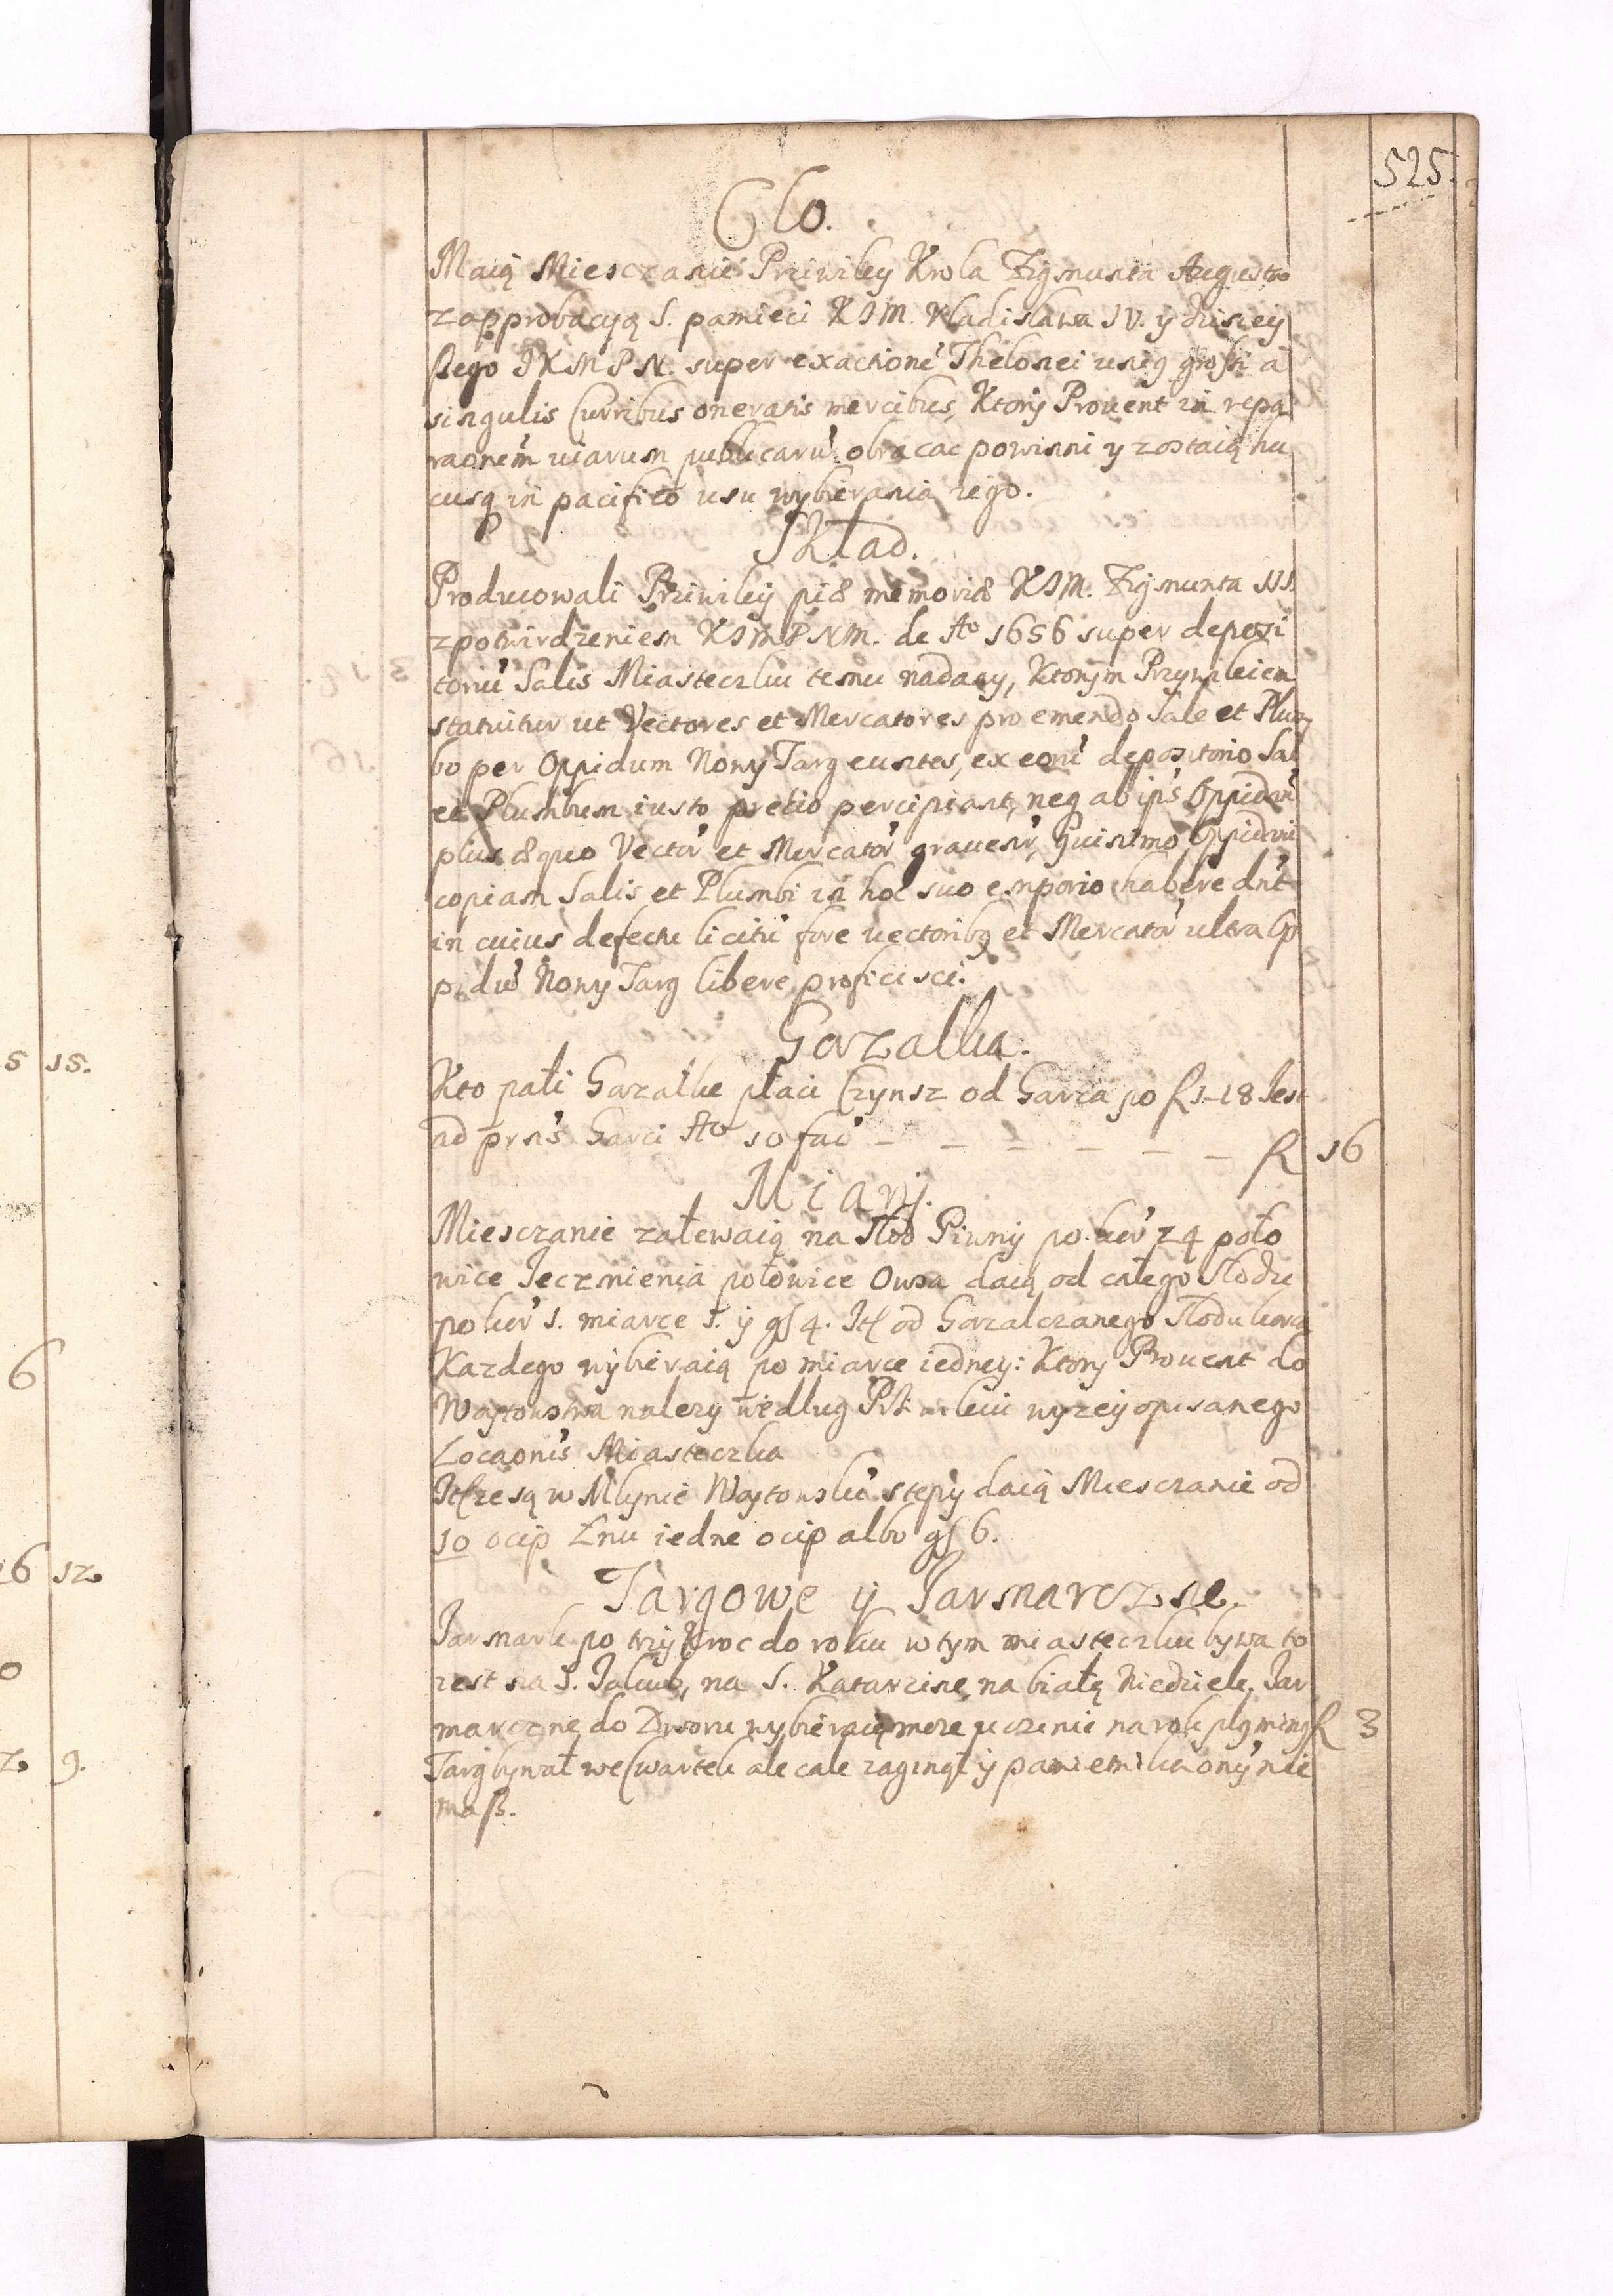 525.
Clo.
Maią Miesczanie Prziwiley Krola Zigmunta Augusta
z approbacyą S. pamieci KJM. Wladislawa IV. y dzisiey
ßego JKMPN. super exactione Thelonei unig grossi a
singulis Curribus oneratis mercibus, Ktory Prouent in repa
raonem uiarum publicaru obracac powinni y zostaią hu
cusq in pacifico usu wybierania iego.
Skład.
Producowali Prziwiley piæ memoriæ KJM. Zigmunta III.
z potwirdzeniem KJMPNM. de Ao 1656 super deposi
toriu Salis Miasteczku temu nadany, Ktorym Przywileiem
statuitur ut Vectores et Mercatores pro emendo Sale et Plum
bo per Oppidum Nowy Targ euntes, ex eoni depositorio Sal
et Plumbum iusto pretio percipiant, neq ab ips Oppidani
plus æquo Vector et Mercator grauenr, quinimo Oppidani
copiam Salis et Plumbi in hoc suo emporio habere dnt
in cuius defectu licitu fore uectoribq et Mercator ultra Op
pidu Nowy Targ libere proficisci.
Gorzalka.
Kto pali Gorzalke płaci Czynsz od Garca po fl 1-18 Iest
ad prns Garci Ao 10 fac – – – – – – fl 16
Miary.
Miesczanie zalewaią na Słod Piwny po kor 24 poło
wice Ieczmienia połowice Owsa daią od całego Słodu
po kor 1. miarce 1. y gs 4. Itl od Gorzalczanego Słodu kora
Kazdego wybieraią po miarce iedney: Ktory Prouent do
Woytowstwa nalezy według Prziwileiu wyzey opisanego
Locaonis Miasteczka
Itl ze są w Mlynie Woytowsku stępy daią Miesczanie od
10 ocip Lnu iedne ocip albo gs 6.
Targowe y Jarmarczne.
Jarmark po trzy Kroc do roku w tym miasteczku bywa to
iest na S. Jakub, na S. Katarzine, na białą Niedziele, Jar
marczne do Dworu wybieraią mere uczenie na rok plg ming fl 3
Targ bywał we Czwartek ale cale zaginął y pamietniku ony nie
maß.
5 15.
6
26 12.
0
2. 9.